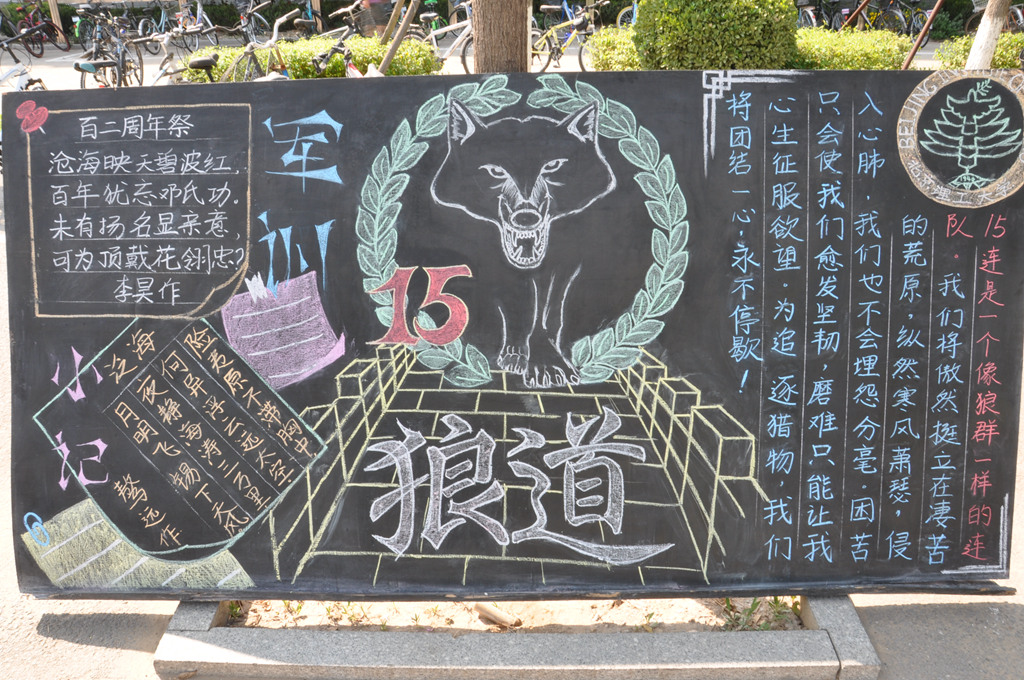 百二周年祭
沧海映天碧波红,
百年犹忘邓氏功.
未有扬名显亲意,
可为顶戴花翎忠?
李昊作
军训
小记
泛海
险夷原不滞胸中
何异浮云远太空
夜静海涛三万里
月明飞锡下天风
骜远作
15
狼道
15连是一个像狼群一样的连
队。我们将傲然挺立在凄苦
的荒原,纵然寒风萧瑟,侵
入心肺.我们也不会埋怨分毫.困苦
只会使我们愈发坚韧,磨难只能让我
心生征服欲望.为追逐猎物,我们
将团结一心,永不停歇!